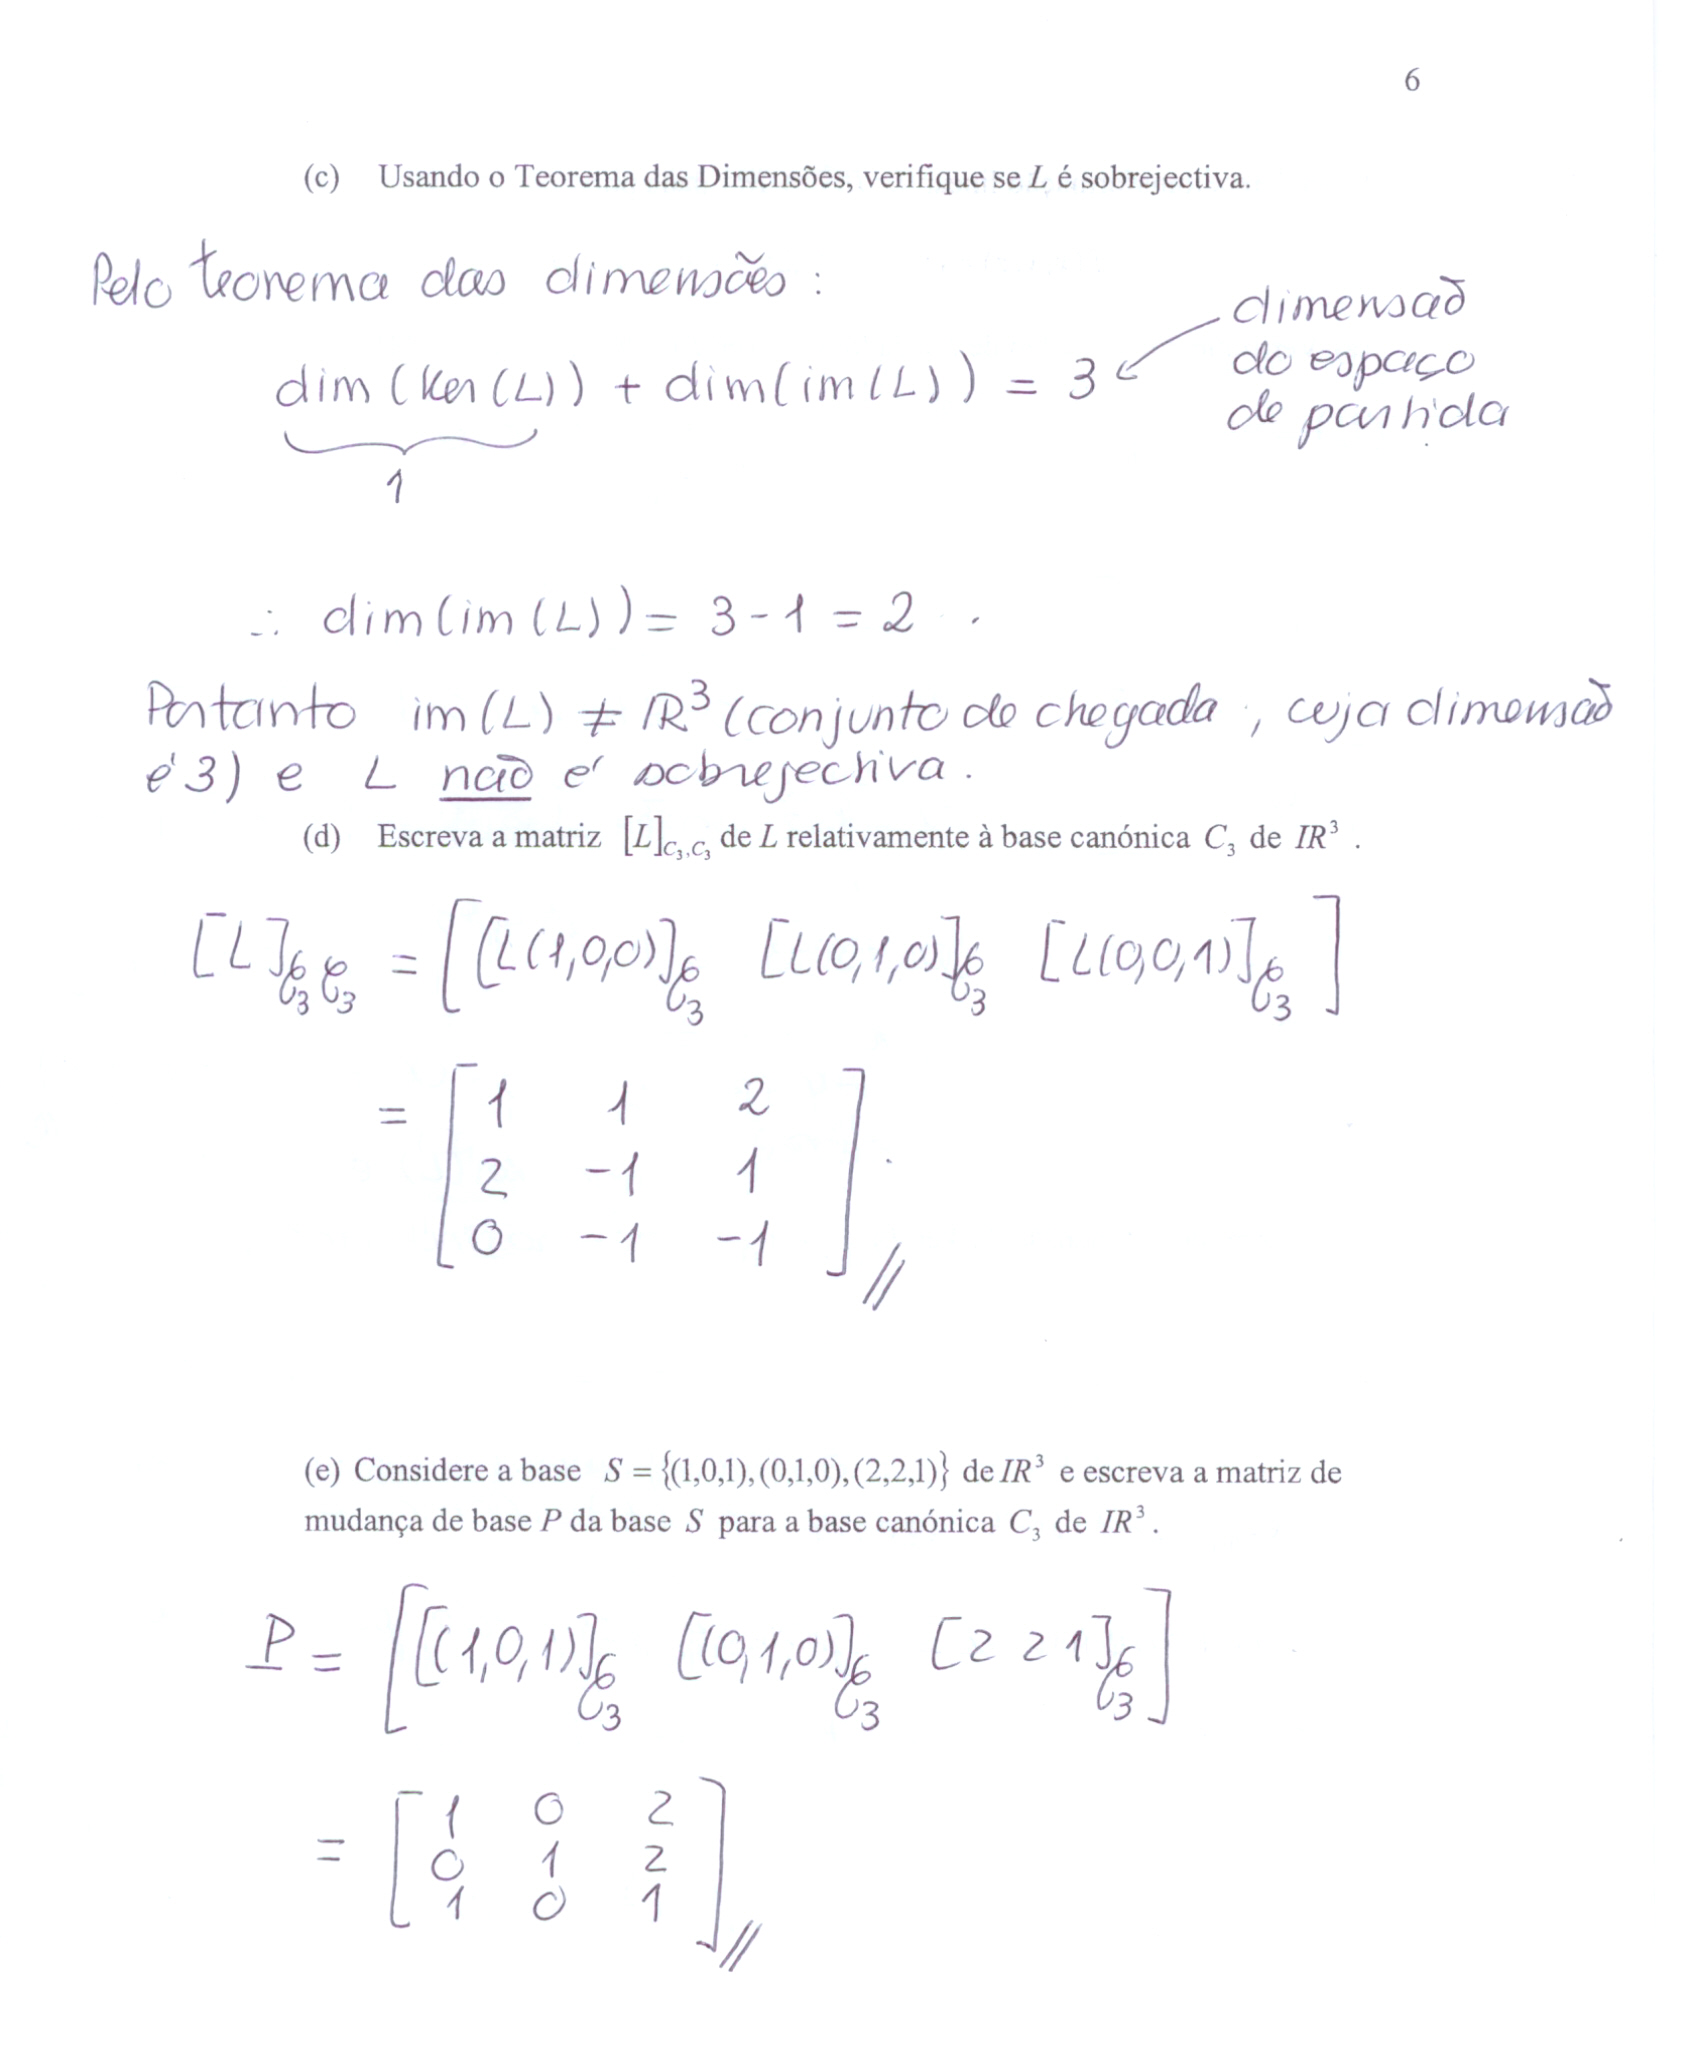 6
(c) Usando o Teorema das Dimensões, verifique se L é sobrejectiva.
Pelo teorema das dimensões :
dim (Ker (L)) + dim(im(L)) = 3
dimensão
do espaço
de partida
1
∴ dim(im(L)) = 3 - 1 = 2 .
Portanto im(L) ≠ IR³ (conjunto de chegada , cuja dimensão
é 3) e L não é sobrejectiva .
(d) Escreva a matriz [L]C₃,C₃ de L relativamente à base canónica C₃ de IR³ .
[L]C₃C₃ = [[L(1,0,0)]C₃ [L(0,1,0)]C₃ [L(0,0,1)]C₃]
= [ 1 1 2
2 -1 1
0 -1 -1 ] . //
(e) Considere a base S = {(1,0,1),(0,1,0),(2,2,1)} de IR³ e escreva a matriz de
mudança de base P da base S para a base canónica C₃ de IR³ .
P = [[(1,0,1)]C₃ [(0,1,0)]C₃ [2 2 1]C₃]
= [ 1 0 2
0 1 2
1 0 1 ] //